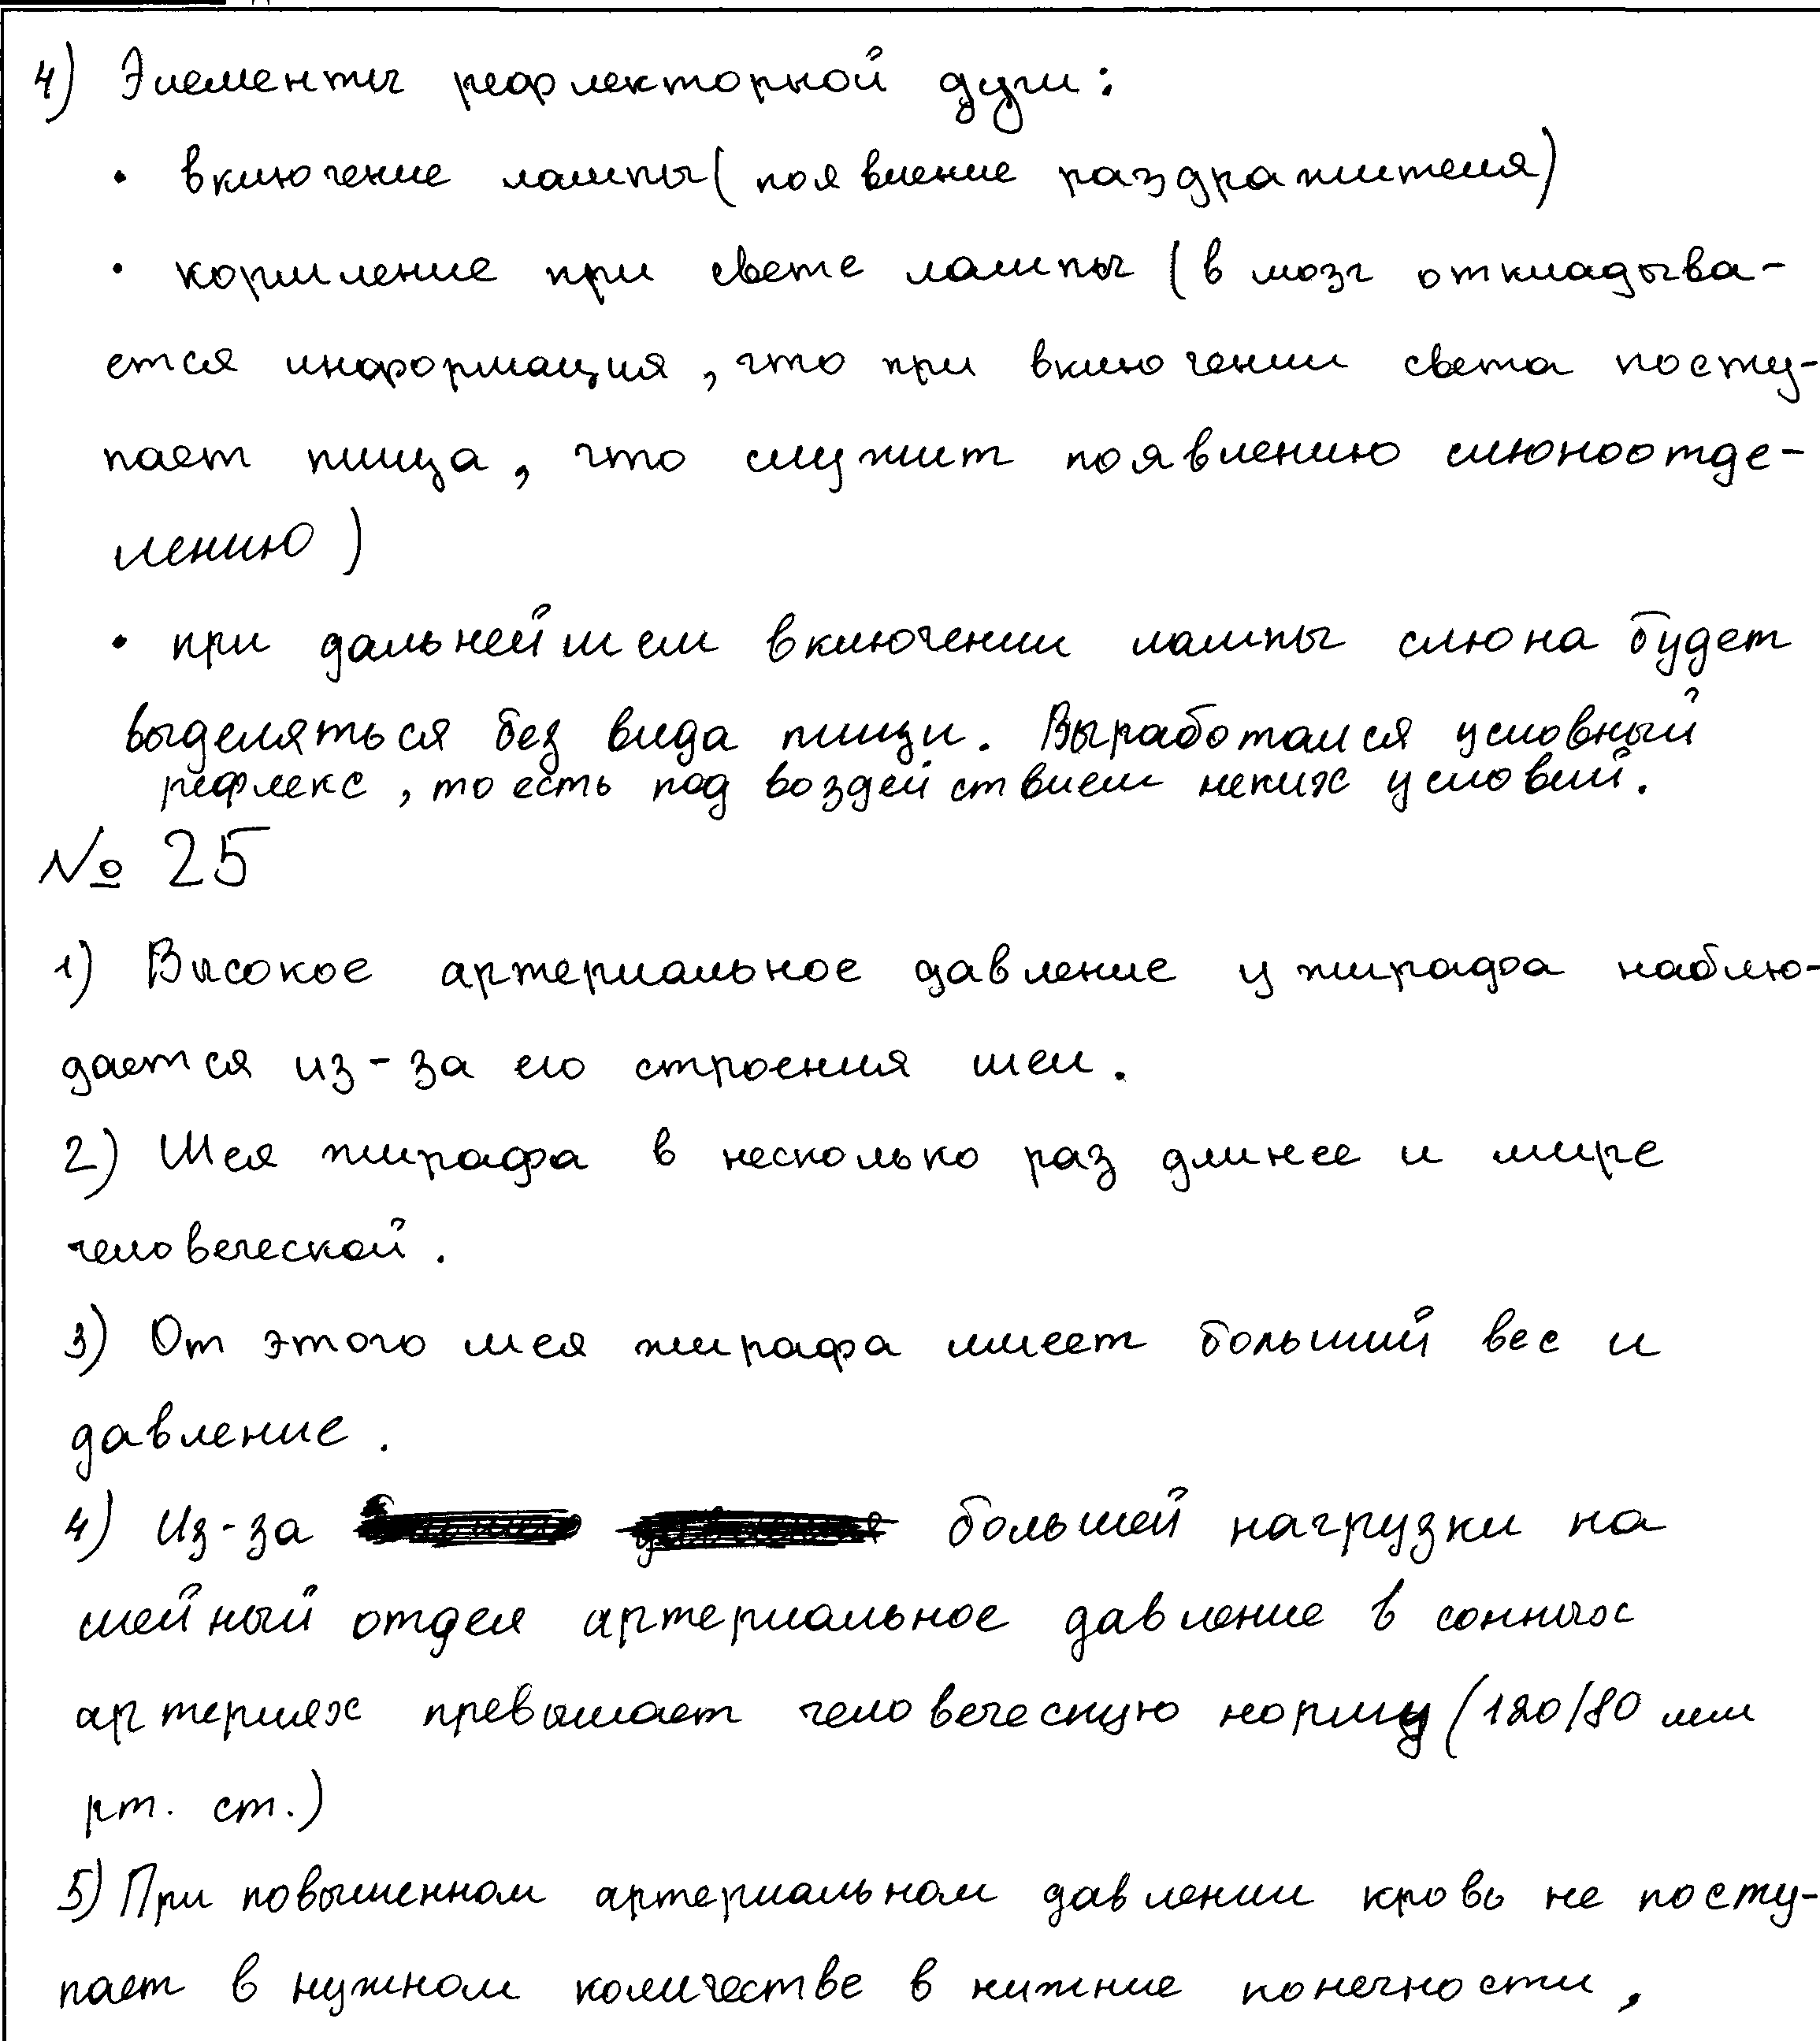 4) Элементы рефлекторной дуги:
• включение лампы (появление раздражителя)
• кормление при свете лампы (в мозг откладыва-
ется информация, что при включении света посту-
пает пища, что служит появлению слюноотде-
лению)
• при дальнейшем включении лампы слюна будет
выделяться без вида пищи. Выработался условный
рефлекс, то есть под воздействием неких условий.
№ 25
1) Высокое артериальное давление у жирафа наблю-
дается из-за его строения шеи.
2) Шея жирафа в несколько раз длинее и шире
человеческой.
3) От этого шея жирафа имеет больший вес и
давление.
4) Из-за большей нагрузки на
шейный отдел артериальное давление в сонных
артериях превышает человеческую норму (120/80 мм
рт. ст.)
5) При повышенном артериальном давлении кровь не посту-
пает в нужном количестве в нижние конечности,